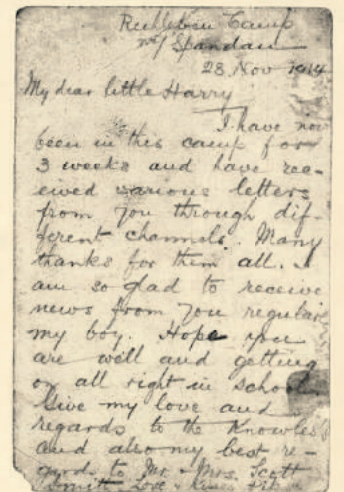 Ruhleben Camp
n/ Spandau
23 Nov 1914
My dear little Harry
I have now
been in this camp for
3 weeks and have rec-
eived various letters
from you through dif-
ferent channels. Many
thanks for them all. I
am so glad to receive
news from you regularly
my boy. Hope you
are well and getting
on all right in school.
Give my love and
regards to the Knowles
and also my best re-
gards to Mr. & Mrs. Scott
Smith. Love & Kisses